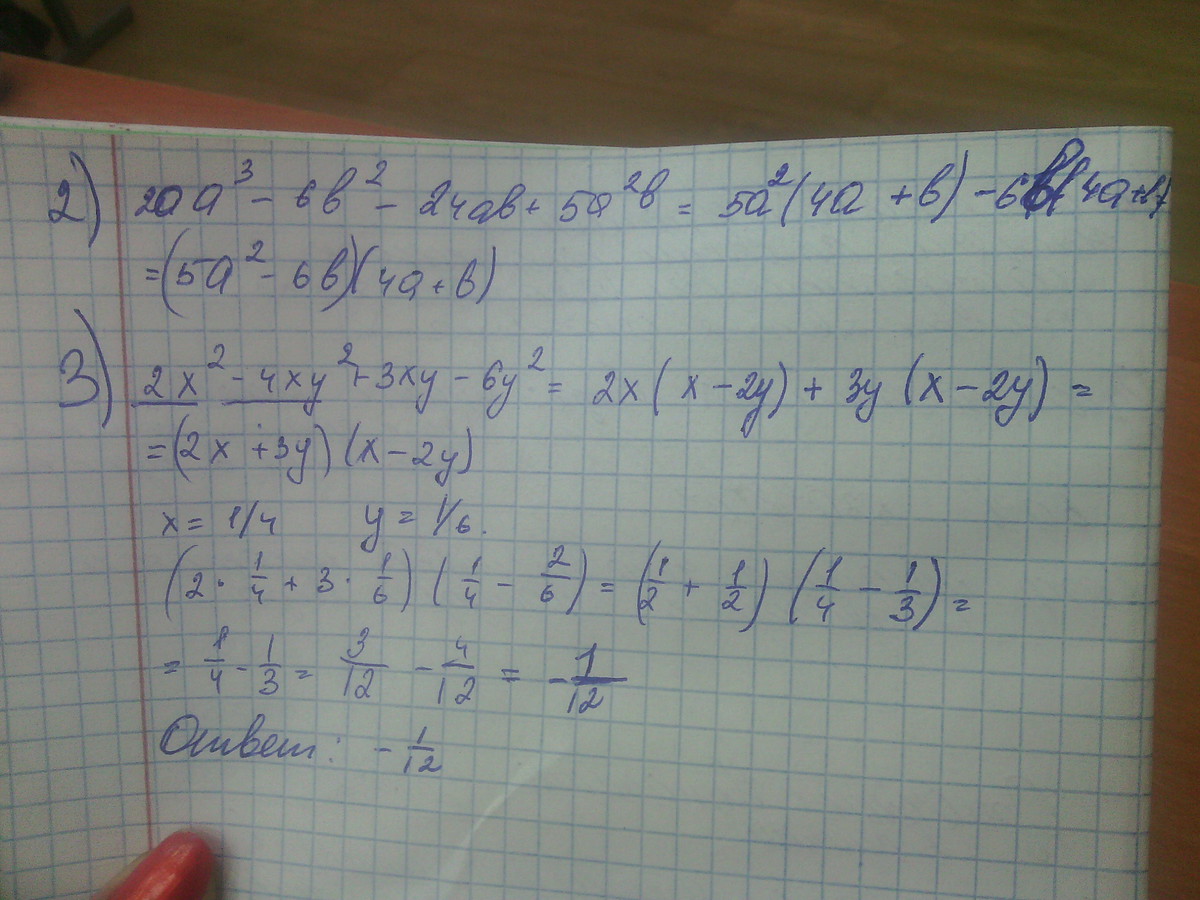 2) 20a³ - 6b² - 24ab + 5a²b = 5a²(4a + b) - 6b(4a+b)
= (5a² - 6b)(4a + b)
3) 2x² - 4xy² + 3xy - 6y² = 2x(x - 2y) + 3y(x - 2y) =
= (2x + 3y)(x - 2y)
x = 1/4 y = 1/6.
(2 · 1/4 + 3 · 1/6)(1/4 - 2/6) = (1/2 + 1/2)(1/4 - 1/3) =
= 1/4 - 1/3 = 3/12 - 4/12 = -1/12
Ответ: -1/12